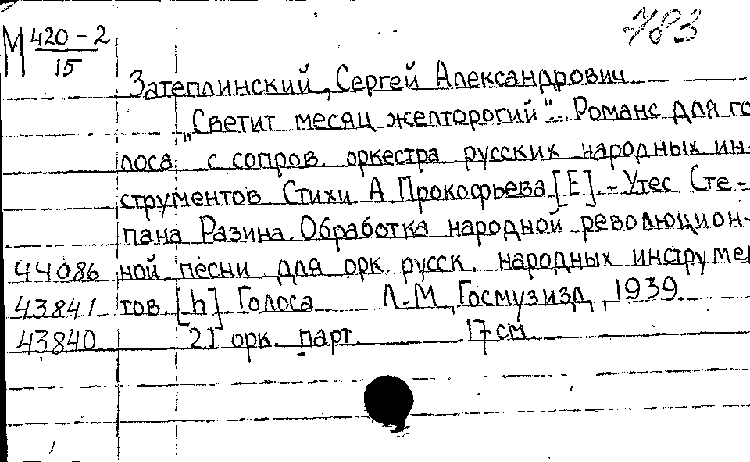 783
М 420-2
15
Затеплинский, Сергей Александрович
"Светит месяц желторогий". Романс для го
лоса с сопров. оркестра русских народных ин-
струментов Стихи А Прокофьева [E]. - Утес Сте-
пана Разина. Обработка народной революцион-
44086 ной песни для орк. русск. народных инструме
43841 тов [h] Голоса Л-М, Госмузизд, 1939
43840 21 орк. парт. 17 см